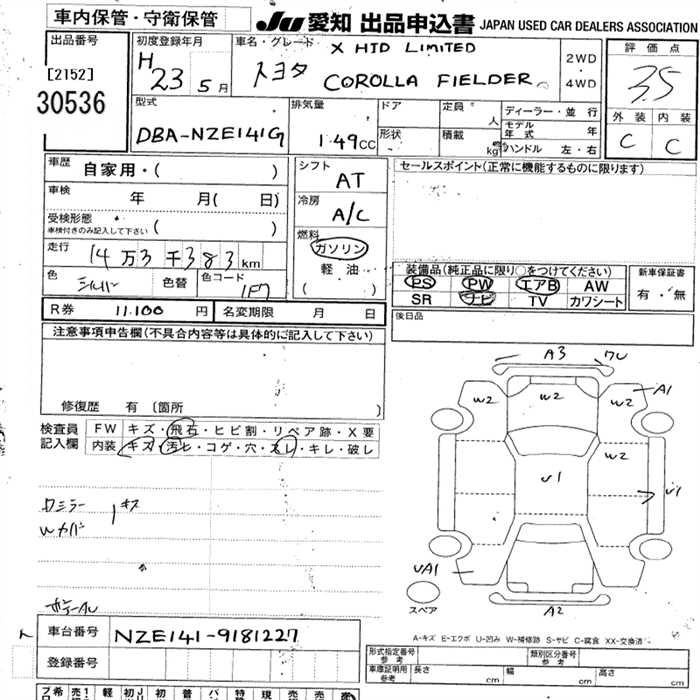 車内保管・守衛保管
JU 愛知 出品申込書 JAPAN USED CAR DEALERS ASSOCIATION
出品番号
[2152]
30536
初度登録年月
H 23 5月
車名・グレード
X HID LIMITED
トヨタ COROLLA FIELDER
2WD
・
4WD
評価点
3.5
外装 内装
C C
型式
DBA-NZE141G
排気量
1.49CC
ドア
形状
定員 人
積載 kg
ディーラー・並行
モデル年式 年
ハンドル 左・右
車歴
自家用・( )
車検
年 月( 日)
受検形態
車検付きのみ記入して下さい ( )
走行
14万3千383km
色
シルバー
色替
色コード
1F7
シフト
AT
冷房
A/C
燃料
ガソリン
軽油
( )
セールスポイント(正常に機能するものに限ります)
装備品(純正品に限り○をつけてください)
PS PW エアB AW
SR ナビ TV カワシート
新車保証書
有・無
R券 11.100円
名変期限 月 日
後日品
注意事項申告欄(不具合内容等は具体的に記入して下さい)
修復歴 有 〔箇所 〕
検査員
記入欄
FW キズ・飛石・ヒビ割・リペア跡・X要
内装 キズ・汚れ・コゲ・穴・スレ・キレ・破レ
Wカバ
キズ
A3
W2 W2 W2
A1
W2
U1
UA1
A2
スペア
A-キズ E-エクボ U-凹み W-補修跡 S-サビ C-腐食 XX-交換済
車台番号
NZE141-9181227
登録番号
形式指定番号
参考
類別区分番号
参考
車庫証明用
参考
長さ cm
幅 cm
高さ cm